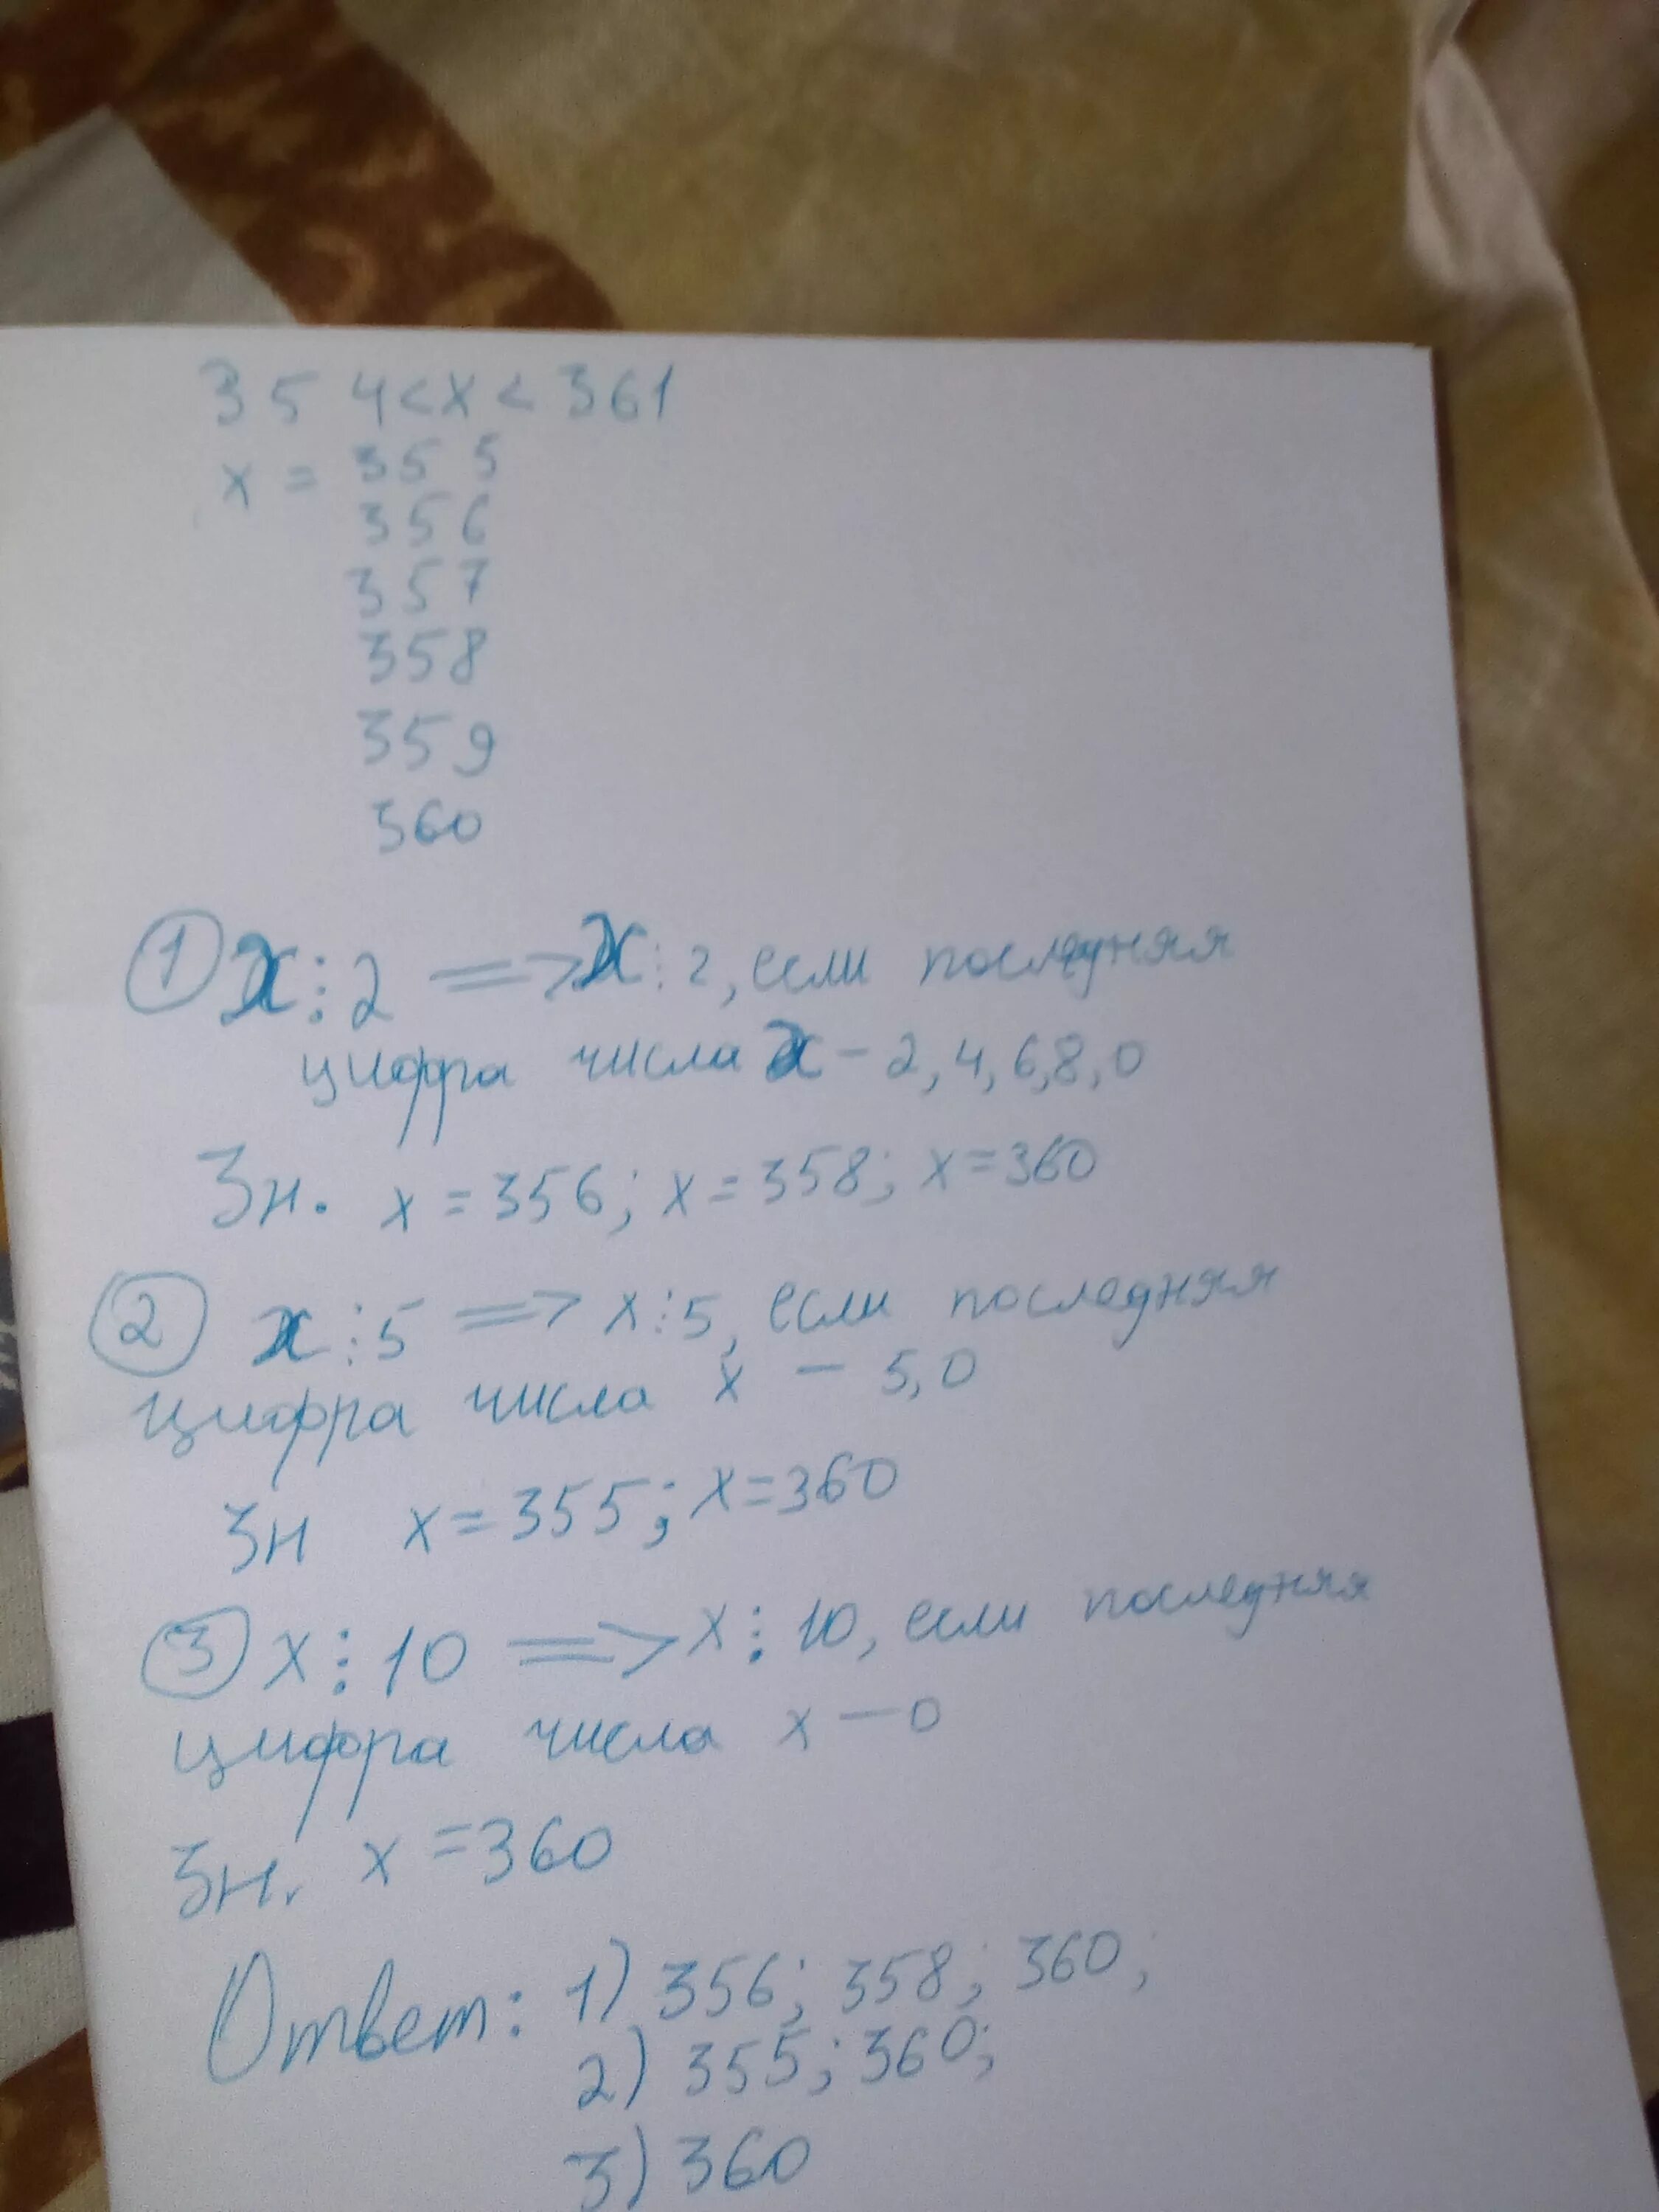 354<x<361
x = 355
356
357
358
359
360
① x⋮2 => x⋮2, если последняя
цифра числа x - 2,4,6,8,0
Зн. x = 356; x = 358; x = 360
② x⋮5 => x⋮5, если последняя
цифра числа x - 5,0
Зн x = 355; x = 360
③ x⋮10 => x⋮10, если последняя
цифра числа x - 0
Зн. x = 360
Ответ: 1) 356; 358; 360;
2) 355; 360;
3) 360